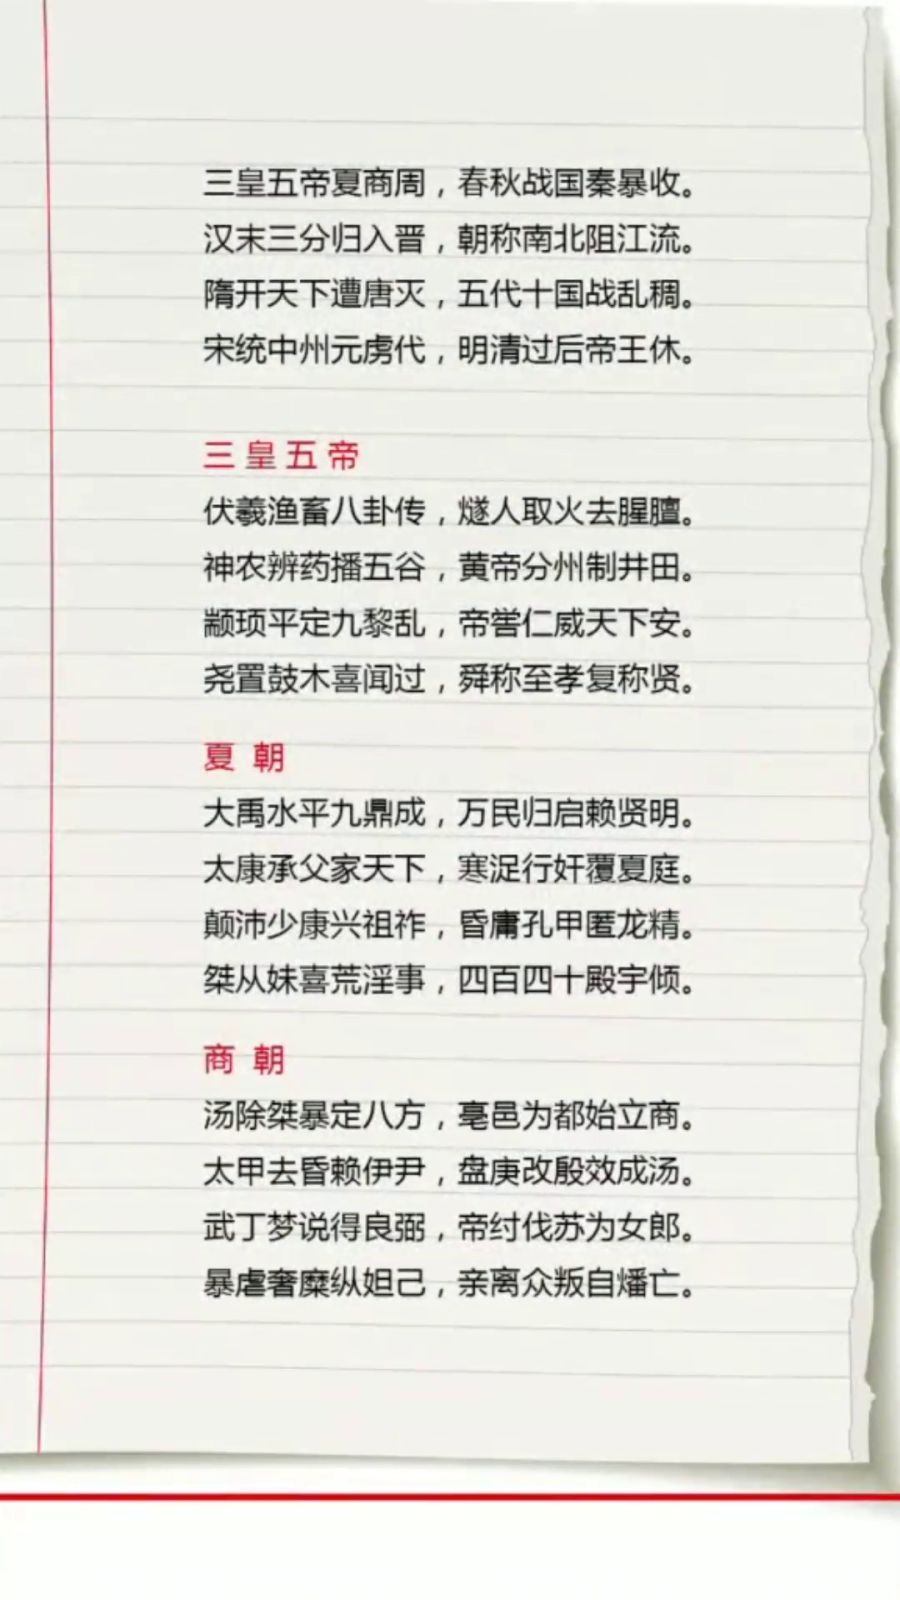 三皇五帝夏商周，春秋战国秦暴收。
汉末三分归入晋，朝称南北阻江流。
隋开天下遭唐灭，五代十国战乱稠。
宋统中州元虏代，明清过后帝王休。
三皇五帝
伏羲渔畜八卦传，燧人取火去腥膻。
神农辨药播五谷，黄帝分州制井田。
颛顼平定九黎乱，帝喾仁威天下安。
尧置鼓木喜闻过，舜称至孝复称贤。
夏朝
大禹水平九鼎成，万民归启赖贤明。
太康承父家天下，寒浞行奸覆夏庭。
颠沛少康兴祖祚，昏庸孔甲匿龙精。
桀从妹喜荒淫事，四百四十殿宇倾。
商朝
汤除桀暴定八方，亳邑为都始立商。
太甲去昏赖伊尹，盘庚改殷效成汤。
武丁梦说得良弼，帝纣伐苏为女郎。
暴虐奢糜纵妲己，亲离众叛自燔亡。